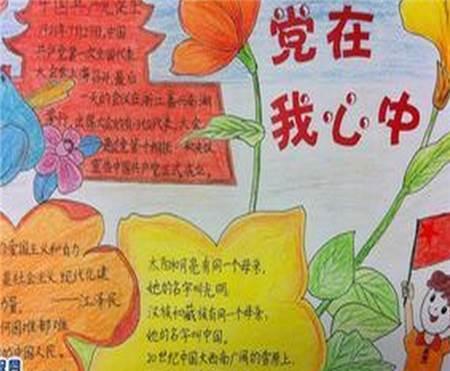 党在
我心中
中国共产党诞生
1921年7月23日,中国
共产党第一次全国代表
大会在上海召开,最后
一天的会议在浙江嘉兴南湖
举行,出席大会的有13位代表,大会
宣告中国共产党正式成立。
爱国主义和自力
是社会主义现代化建
力量。——江泽民
何困难都难
中国人民。
太阳和月亮有同一个母亲,
她的名字叫光明,
汉族和藏族有同一个母亲;
她的名字叫中国。
20世纪中国大西南广阔的雪原上,